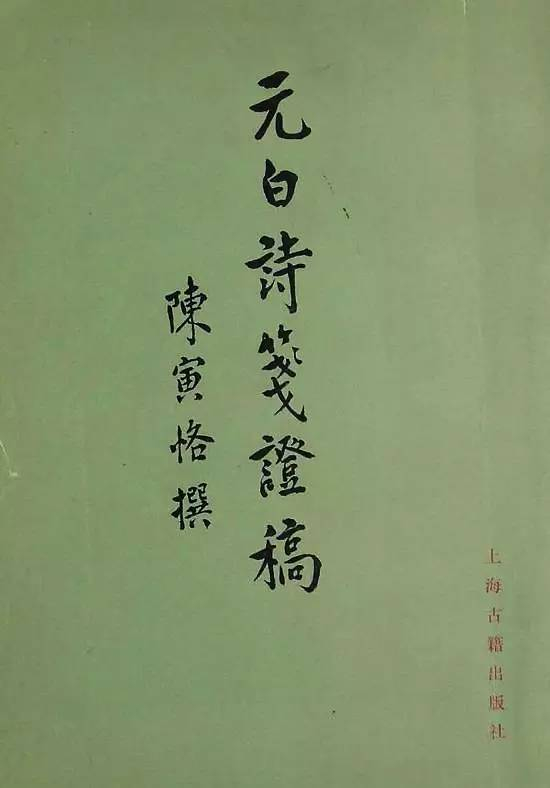 元白詩箋證稿
陳寅恪撰
上海古籍出版社